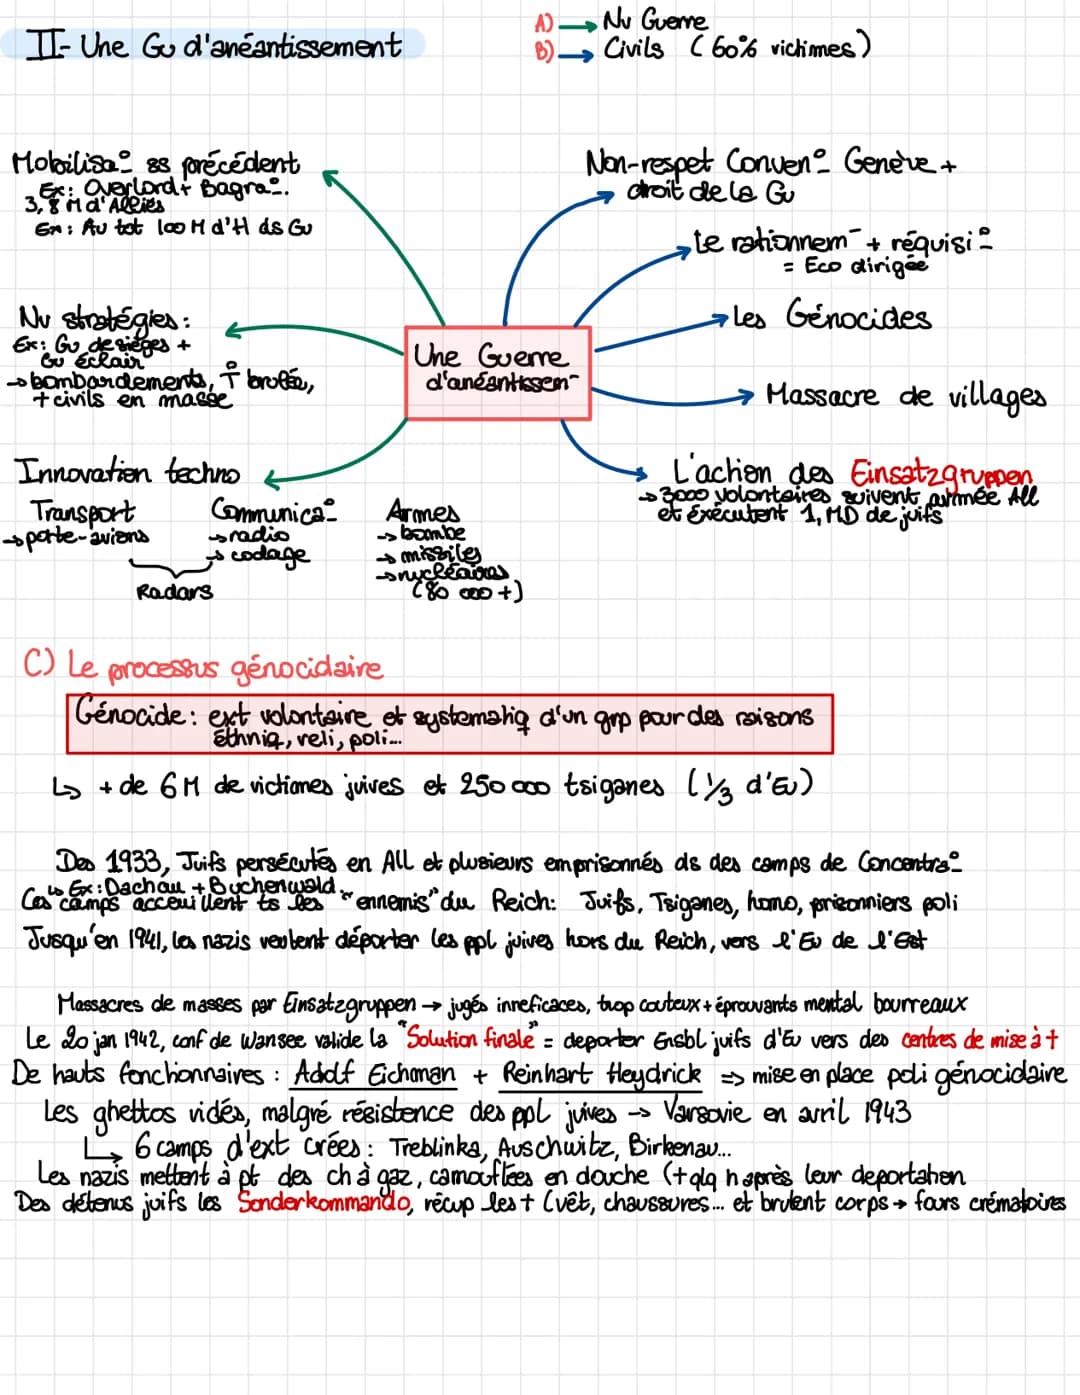 II- Une Gu d'anéantissement
A) → Nv Guerre
B) → Civils (60% victimes)
Mobilisa° ss précédent
Ex: Overlord + Bagra°.
3,8 M d'Alliés
Ex: Au tot 100 M d'H ds Gu
Non-respet Conven° Genève +
droit de la Gu
Le rationnem⁻ + réquisi°
= Eco dirigée
Nv stratégies:
Ex: Gu de sièges +
Gu éclair
→ bombardements, T brulée,
+ civils en masse
Les Génocides
Une Guerre
d'anéantissem⁻
Massacre de villages
Innovation techno
Transport
→ porte-avions
Communica°
→ radio
→ codage
Radars
Armes
→ bombe
→ missiles
→ nucléaires
(80 000 +)
L'action des Einsatzgruppen
→ 3000 volontaires suivent armée All
et éxécutent 1, MD de juifs
C) Le processus génocidaire
Génocide: ext volontaire et systematiq d'un grp pour des raisons
éthniq, reli, poli...
↳ + de 6 M de victimes juives et 250 000 tsiganes (1/3 d'Eu)
Des 1933, Juifs persécutés en All et plusieurs emprisonnés ds des camps de Concentra°
↳ Ex: Dachau + Buchenwald
Ces camps acceuillent ts les "ennemis" du Reich: Juifs, Tsiganes, homo, prisonniers poli
Jusqu'en 1941, les nazis veulent déporter les ppl juives hors du Reich, vers l'Eu de l'Est
Massacres de masses par Einsatzgruppen → jugés inneficaces, trop couteux + éprouvants mental bourreaux
Le 20 jan 1942, conf de Wansee valide la "Solution finale" = deporter Ensbl juifs d'Eu vers des centres de mise à t
De hauts fonchonnaires : Adolf Eichman + Reinhart Heydrick => mise en place poli génocidaire
Les ghettos vidés, malgré résistence des ppl juives → Varsovie en avril 1943
↳ 6 camps d'ext crées: Treblinka, Auschwitz, Birkenau...
Les nazis mettent à pt des ch à gaz, camouflées en douche (+ qlq h après leur deportation
Des détenus juifs les Sonderkommando, récup les t (vêt, chaussures... et brulent corps → fours crématoires